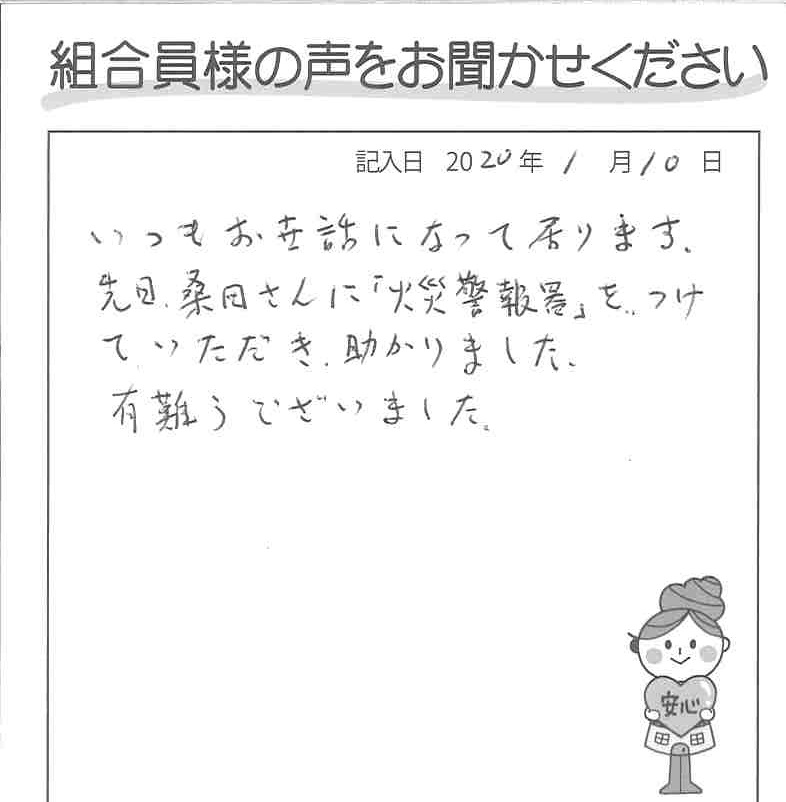 組合員様の声をお聞かせください
記入日 2020年 1月10日
いつもお世話になって居ります。
先日、桑田さんに「火災警報器」を、つけ
ていただき、助かりました。
有難うございました。
安心